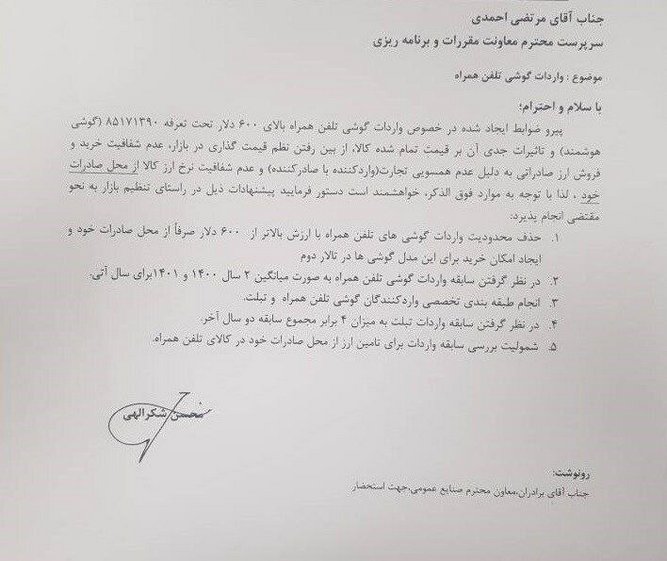 جناب آقای مرتضی احمدی
سرپرست محترم معاونت مقررات و برنامه ریزی
موضوع : واردات گوشی تلفن همراه
با سلام و احترام؛
پیرو ضوابط ایجاد شده در خصوص واردات گوشی تلفن همراه بالای ۶۰۰ دلار تحت تعرفه ۸۵۱۷۱۳۹۰ (گوشی
هوشمند) و تاثیرات جدی آن بر قیمت تمام شده کالا، از بین رفتن نظم قیمت گذاری در بازار، عدم شفافیت خرید و
فروش ارز صادراتی به دلیل عدم همسویی تجارت(واردکننده با صادرکننده) و عدم شفافیت نرخ ارز کالا از محل صادرات
خود ، لذا با توجه به موارد فوق الذکر، خواهشمند است دستور فرمایید پیشنهادات ذیل در راستای تنظیم بازار به نحو
مقتضی انجام پذیرد:
۱. حذف محدودیت واردات گوشی های تلفن همراه با ارزش بالاتر از ۶۰۰ دلار صرفاً از محل صادرات خود و
ایجاد امکان خرید برای این مدل گوشی ها در تالار دوم
۲. در نظر گرفتن سابقه واردات گوشی تلفن همراه به صورت میانگین ۲ سال ۱۴۰۰ و ۱۴۰۱برای سال آتی.
۳. انجام طبقه بندی تخصصی واردکنندگان گوشی تلفن همراه و تبلت.
۴. در نظر گرفتن سابقه واردات تبلت به میزان ۴ برابر مجموع سابقه دو سال آخر
۵. شمولیت بررسی سابقه واردات برای تامین ارز از محل صادرات خود در کالای تلفن همراه.
محسن شکرالهی
رونوشت:
جناب آقای برادران،معاون محترم صنایع عمومی،جهت استحضار